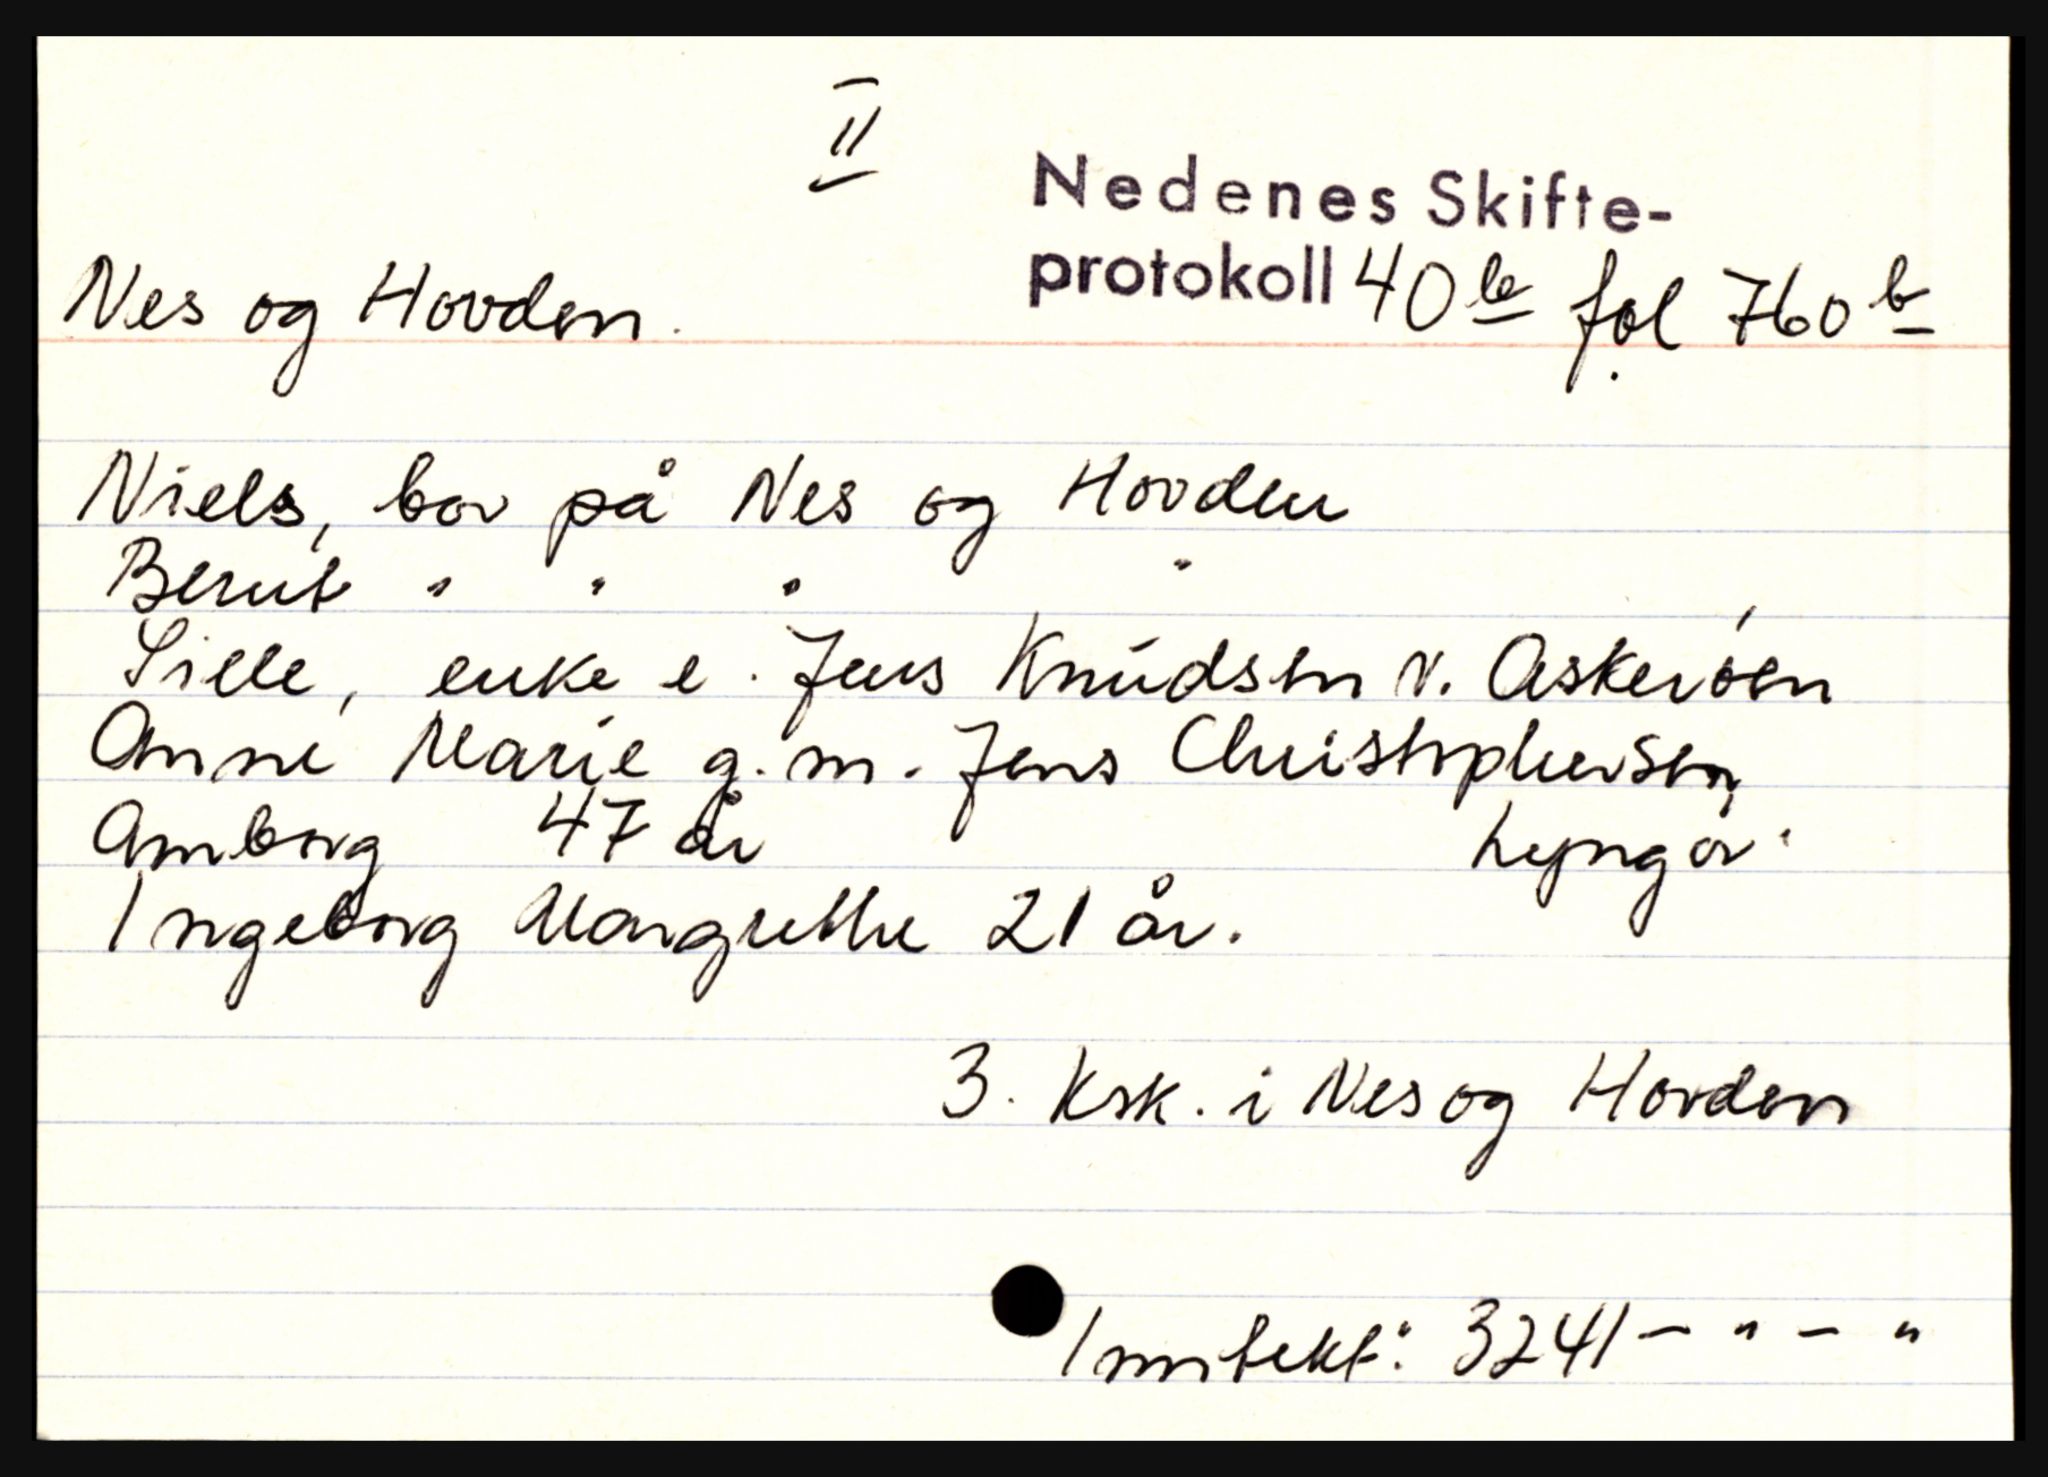 II
Nedenes Skifte-
protokoll 40 b fol 760 b
Nes og Hovden.
Niels, bor på Nes og Hovden
Berut " " " "
Sille, enke e. Jens Knudsen v. Askerøen
Anne Marie g. m. Jens Christophersen,
Amborg 47 år Lyngør.
Ingeborg Margrethe 21 år.
3. Krk. i Nes og Hovden
Inntekt: 3241 - " - "